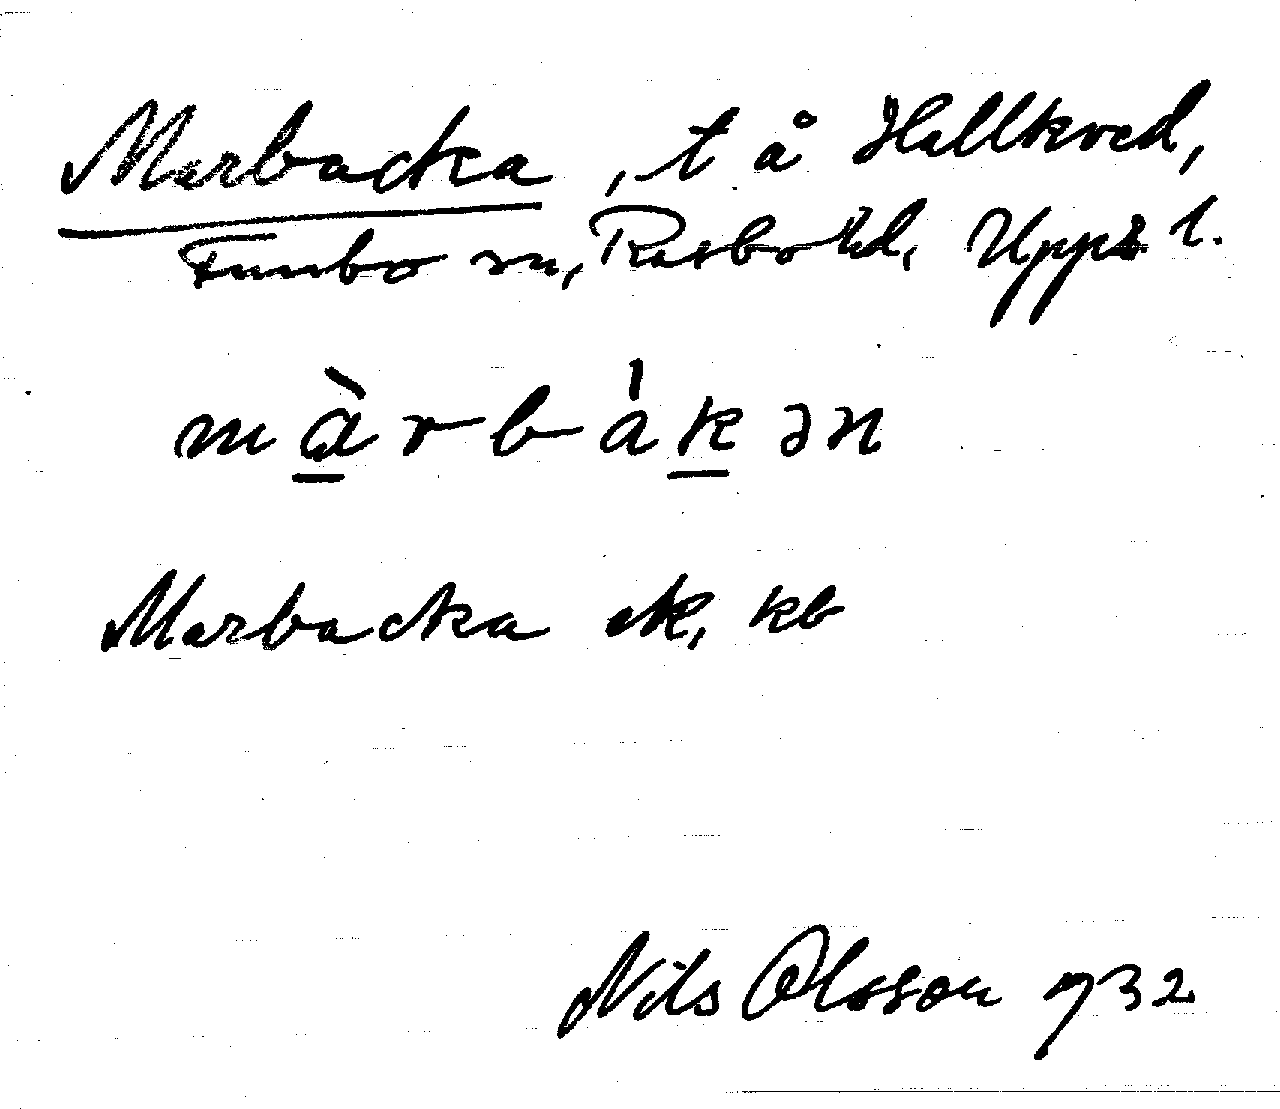 Marbacka, t å Hallkved,
Funbo sn, Rasbo hd, Upps l.
màrbákən
Marbacka ek, kb
Nils Olsson 932